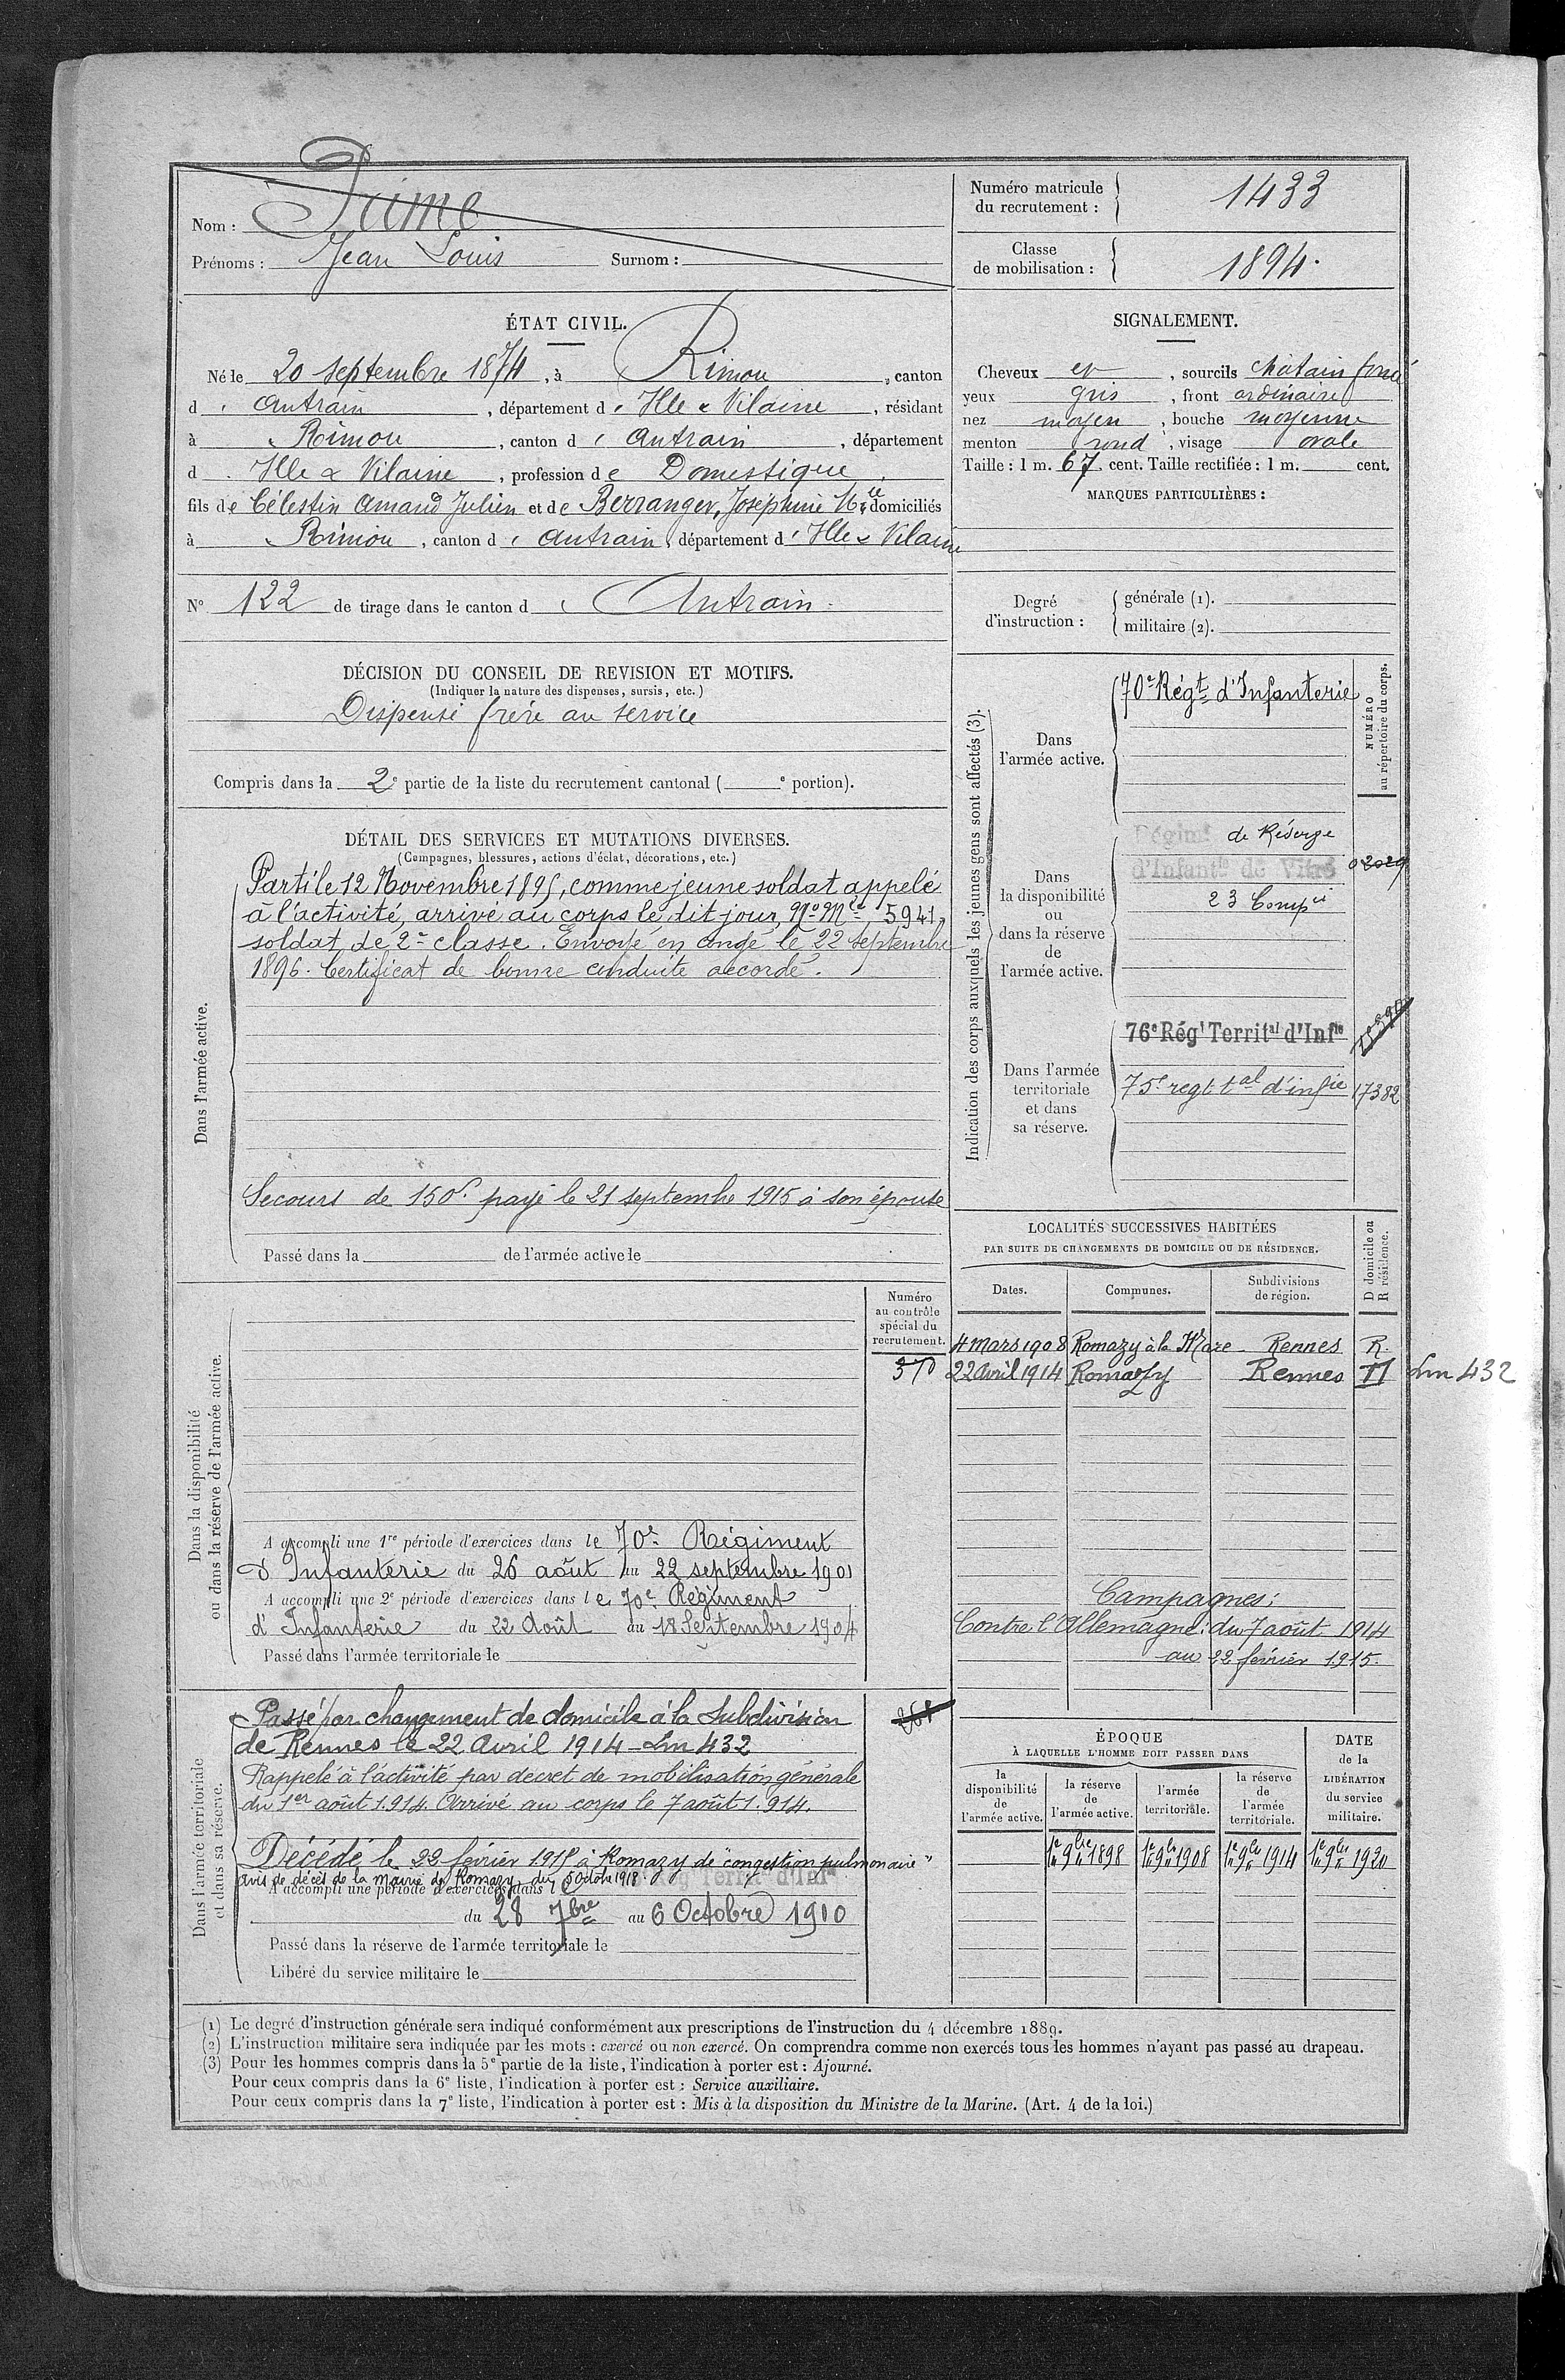 Nom : Prime
Prénoms : Jean Louis Surnom :
Numéro matricule du recrutement : 1433
Classe de mobilisation : 1894.
ÉTAT CIVIL.
Né le 20 septembre 1874, à Rimou, canton
d' Antrain, département d' Ille & Vilaine, résidant
à Rimou, canton d' Antrain, département
d' Ille & Vilaine, profession de Domestique,
fils de Célestin Amand Julien et de Berranger, Joséphine Mie domiciliés
à Rimou, canton d' Antrain, département d' Ille & Vilaine
N° 122 de tirage dans le canton d' Antrain.
SIGNALEMENT.
Cheveux et, sourcils châtain foncé
yeux gris, front ordinaire
nez moyen, bouche moyenne
menton rond, visage ovale
Taille : 1 m. 67 cent. Taille rectifiée : 1 m. cent.
MARQUES PARTICULIÈRES :
Degré d'instruction : générale (1).
militaire (2).
DÉCISION DU CONSEIL DE REVISION ET MOTIFS.
(Indiquer la nature des dispenses, sursis, etc.)
Dispensé frère au service
Compris dans la 2e partie de la liste du recrutement cantonal ( e portion).
DÉTAIL DES SERVICES ET MUTATIONS DIVERSES.
(Campagnes, blessures, actions d'éclat, décorations, etc.)
Dans l'armée active.
Parti le 12 Novembre 1895, comme jeune soldat appelé
à l'activité, arrivé au corps le dit jour, No Mle 5941,
soldat de 2e classe. Envoyé en congé le 22 septembre
1896. Certificat de bonne conduite accordé.
Secours de 150f. payé le 21 septembre 1915 à son épouse
Passé dans la de l'armée active le
Indication des corps auxquels les jeunes gens sont affectés (3).
NUMÉRO au répertoire du corps.
Dans l'armée active.
70e Régt d'Infanterie
Dans la disponibilité ou dans la réserve de l'armée active.
Régimt de Réserve
d'Infantie de Vitré 02029
23 Compie
Dans l'armée territoriale et dans sa réserve.
76e Régt Territal d'Infie
75e regt tal d'infie 17382
LOCALITÉS SUCCESSIVES HABITÉES
PAR SUITE DE CHANGEMENTS DE DOMICILE OU DE RÉSIDENCE.
Dates. Communes. Subdivisions de région. D domicile ou R résidence.
4 mars 1908 Romazy à la Hare Rennes R.
22 avril 1914 Romazy Rennes D Lm 432
Campagnes :
Contre l'Allemagne : du 7 août 1914
au 22 février 1915.
Dans la disponibilité ou dans la réserve de l'armée active.
Numéro au contrôle spécial du recrutement.
A accompli une 1re période d'exercices dans le 70e Régiment
d'Infanterie du 26 août au 22 septembre 1901
A accompli une 2e période d'exercices dans le 70e Régiment
d'Infanterie du 22 Août au 18 Septembre 1904
Passé dans l'armée territoriale le
Dans l'armée territoriale et dans sa réserve.
Passé par changement de domicile à la Subdivision
de Rennes le 22 Avril 1914 - Lm 432
Rappelé à l'activité par décret de mobilisation générale
du 1er août 1.914. Arrivé au corps le 7 août 1.914.
Décédé le 22 février 1915 à Romazy de "congestion pulmonaire"
avis de décès de la mairie de Romazy du 5 Octobre 1918.
A accompli une période d'exercices dans le Rég Territal d'Infie
du 28 7bre au 6 Octobre 1910
Passé dans la réserve de l'armée territoriale le
Libéré du service militaire le
ÉPOQUE
À LAQUELLE L'HOMME DOIT PASSER DANS
la disponibilité de l'armée active. la réserve de l'armée active. l'armée territoriale. la réserve de l'armée territoriale.
DATE de la LIBÉRATION du service militaire.
1er 9bre 1898 1er 9bre 1908 1er 9bre 1914 1er 9bre 1920
(1) Le degré d'instruction générale sera indiqué conformément aux prescriptions de l'instruction du 4 décembre 1889.
(2) L'instruction militaire sera indiquée par les mots : exercé ou non exercé. On comprendra comme non exercés tous les hommes n'ayant pas passé au drapeau.
(3) Pour les hommes compris dans la 5e partie de la liste, l'indication à porter est : Ajourné.
Pour ceux compris dans la 6e liste, l'indication à porter est : Service auxiliaire.
Pour ceux compris dans la 7e liste, l'indication à porter est : Mis à la disposition du Ministre de la Marine. (Art. 4 de la loi.)